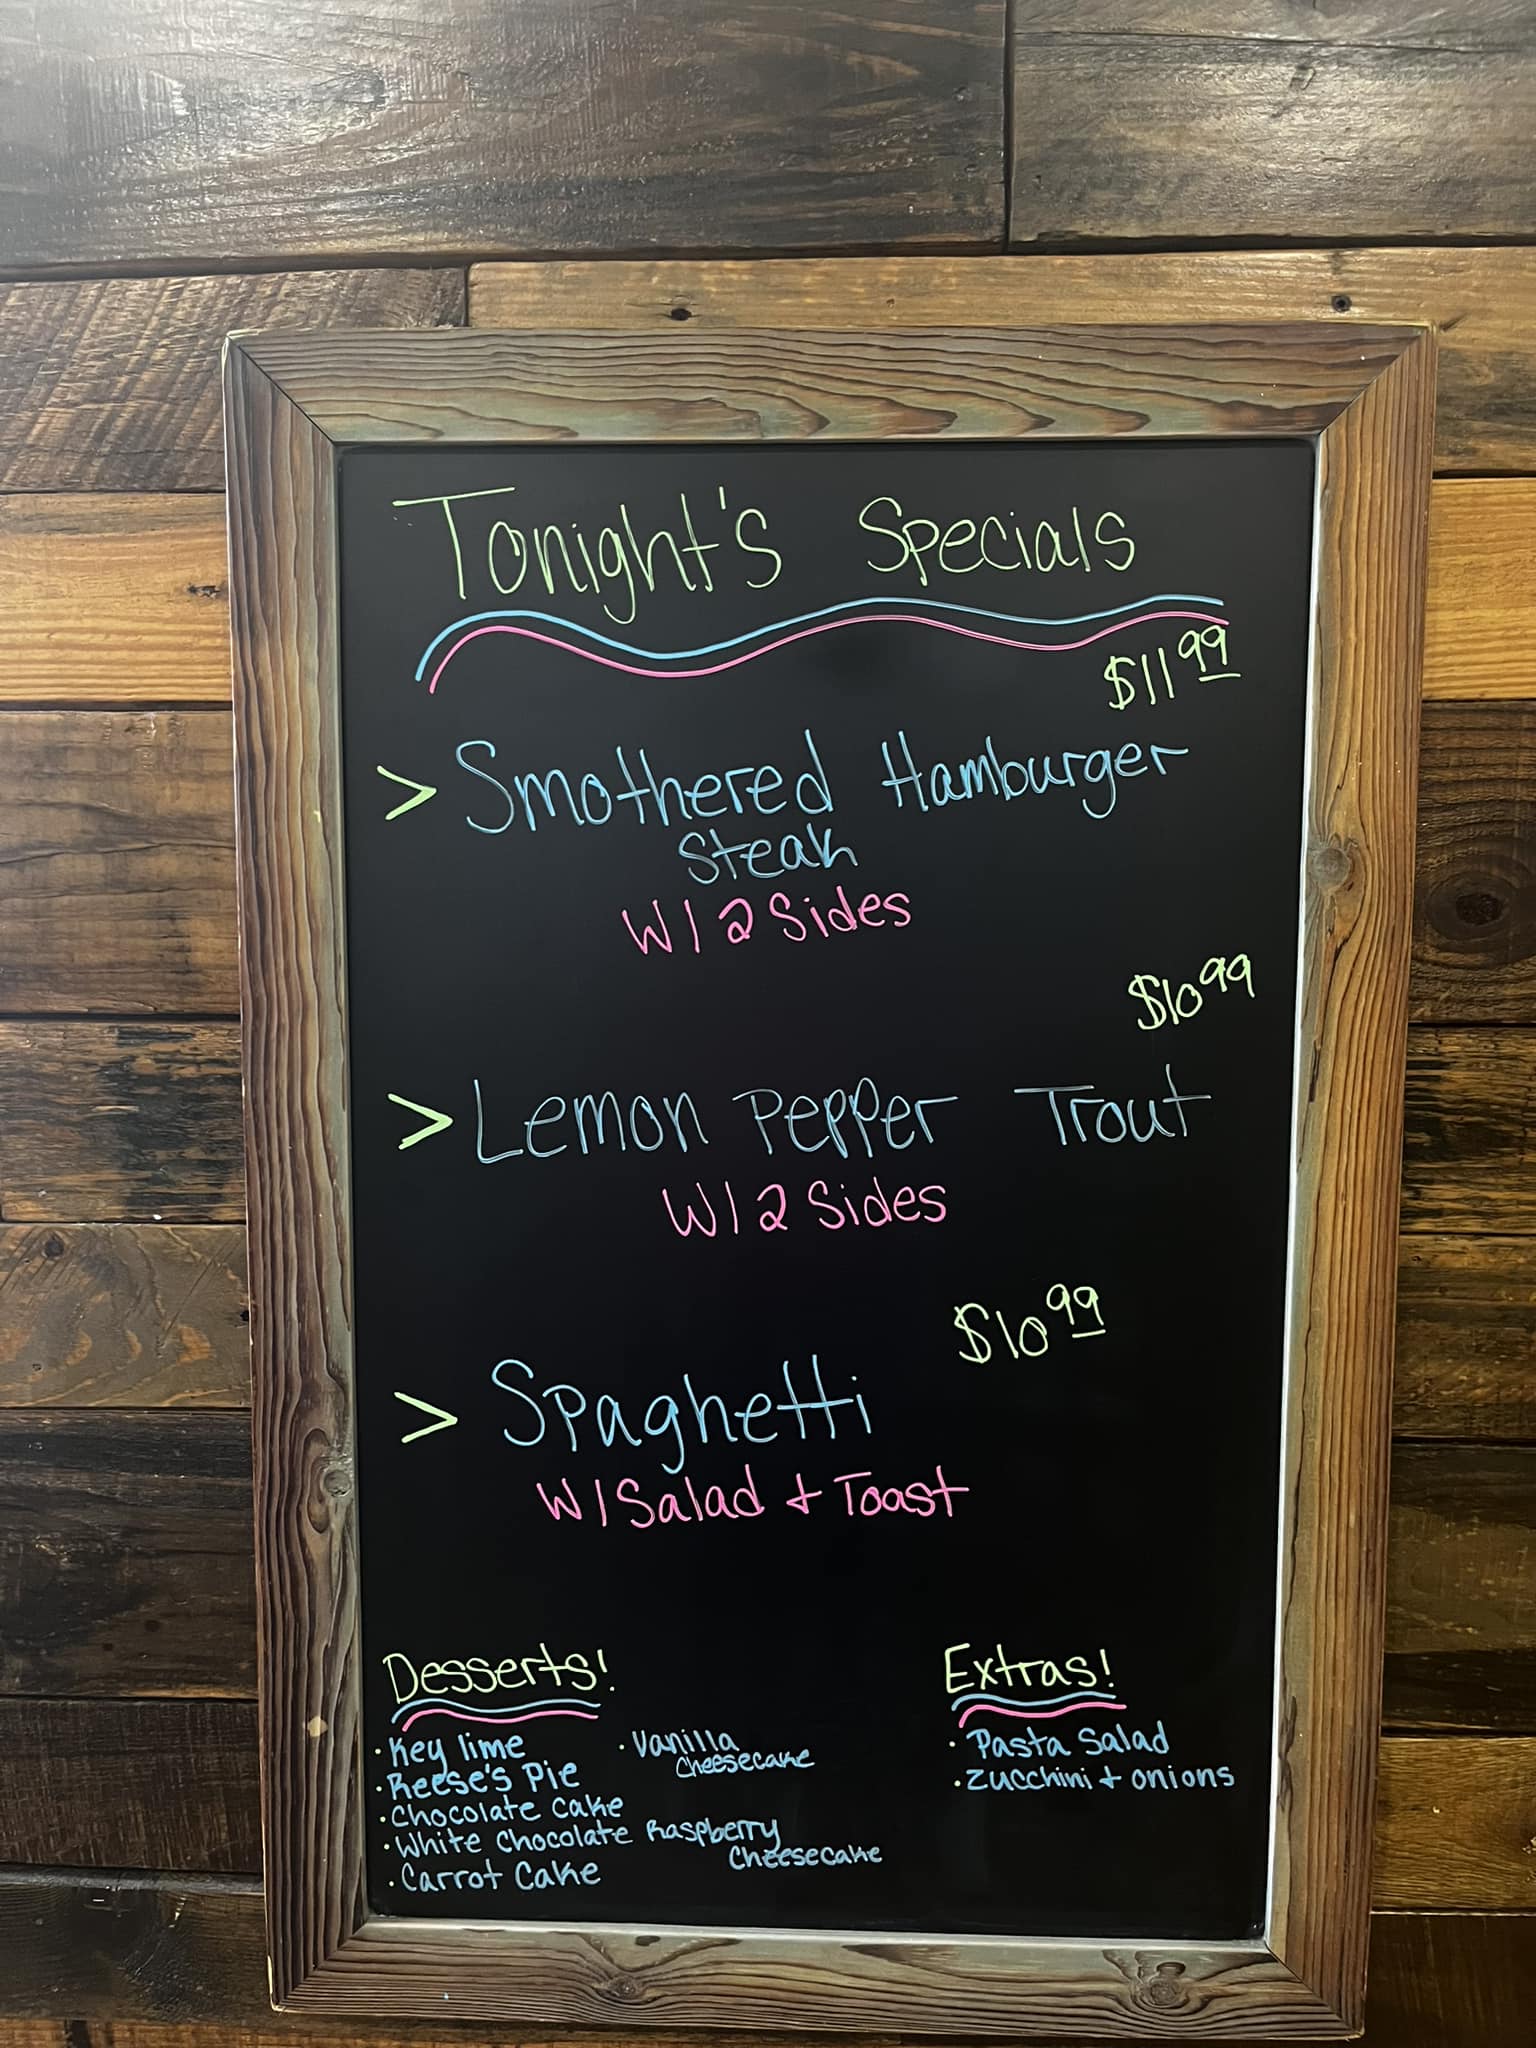 Tonight's Specials
$11.99
> Smothered Hamburger
Steak
W/ 2 Sides
$10.99
> Lemon Pepper Trout
W/ 2 Sides
$10.99
> Spaghetti
W/ Salad + Toast
Desserts!
· Key lime
· Reese's Pie
· Chocolate Cake
· White Chocolate Raspberry
Cheesecake
· Carrot Cake
· Vanilla
Cheesecake
Extras!
· Pasta Salad
· Zucchini + onions